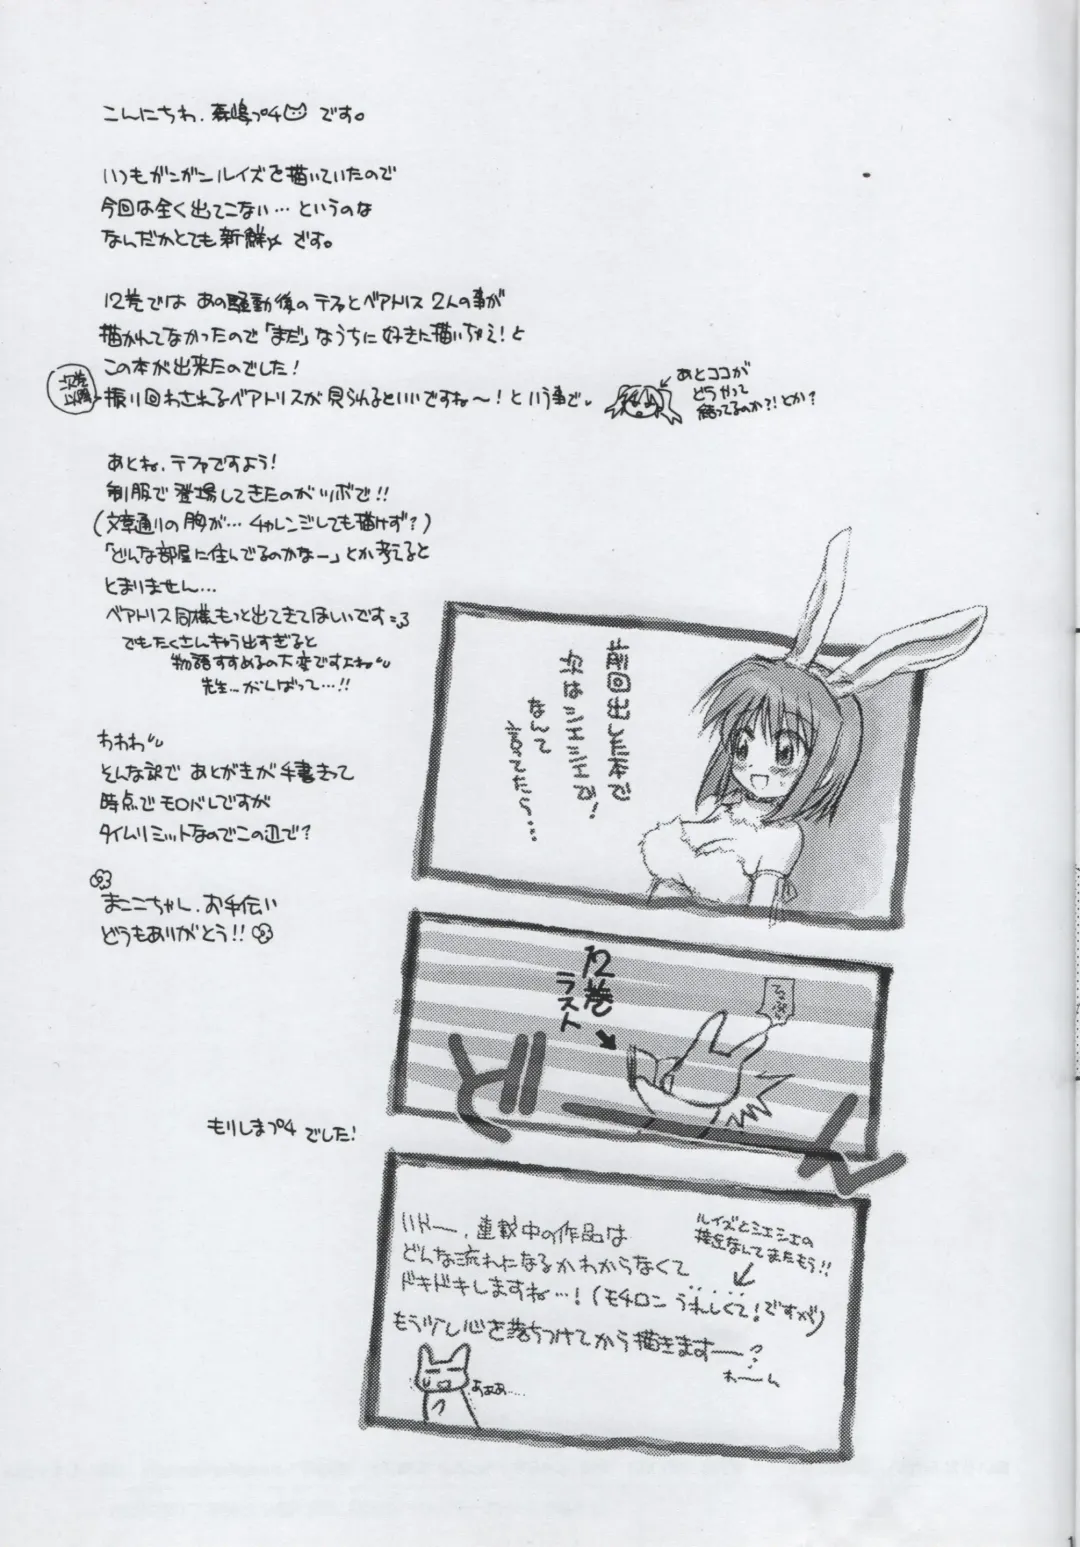 こんにちわ、森嶋プチです。
いつもガンガンルイズを描いていたので
今回は全く出てこない…というのな
なんだかとても新鮮〆です。
12巻では あの騒動後のテファとベアトリス 2人の事が
描かれてなかったので「まだ」なうちに好きに描いちゃえ!と
この本が出来たのでした!
次巻以降
振り回わされるベアトリスが見られるといいですね〜!という事で。
あとココが
どうやって
結ってるのか?!とか?
あとね、テファですよう!
制服で登場してきたのがツボで!!
(文章通りの胸が…チャレンジしても描けず?)
「どんな部屋に住んでるのかなー」とか考えると
とまりません…
ベアトリス同様もっと出てきてほしいです
でもたくさんキャラ出すぎると
物語すすめるの大変ですよね
先生…がんばって…!!
わわわ
そんな訳で あとがきが手書きって
時点でモロバレですが
タイムリミットなのでこの辺で?
まここちゃん、お手伝い
どうもありがとう!!
もりしまプチ でした!
前回出した本で
次はシエシエで!
なんて
言ってたら…
12巻
ラスト
どーん
ハドー、連載中の作品は
どんな流れになるかわからなくて
ドキドキしますね…!(モチロン うれしくて!ですが)
ルイズとシエシエの
なんてまたもう!!
もう少し心を落ちつけてから描きますー?
わーん
あああ……